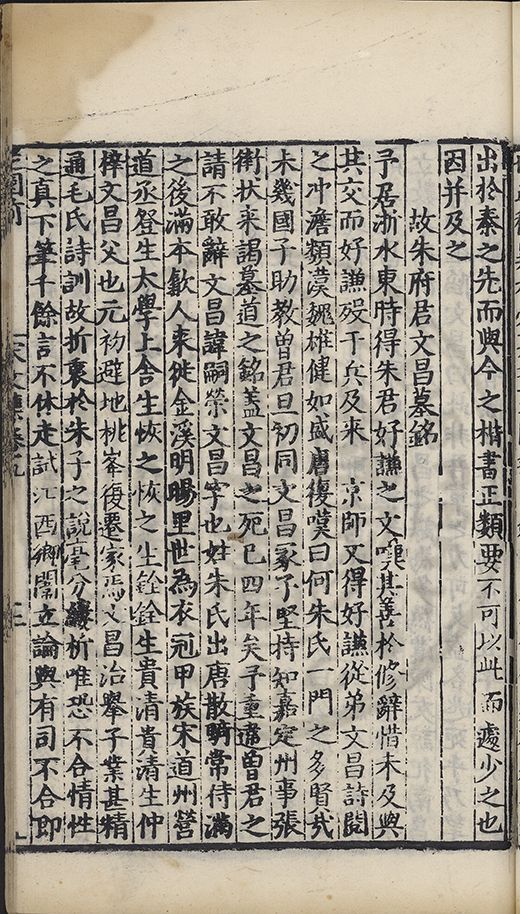 出於秦之先而與今之楷書正類要不可以此而遽少之也
因并及之
故朱府君文昌墓銘
予居浙水東時得朱君好謙之文嘆其善於修辭惜未及與
其交而好謙歿于兵及来京師又得好謙從弟文昌詩閱
之冲澹類漢魏雄健如盛唐復嘆曰何朱氏一門之多賢㢤
未幾國子助教曽君旦初同文昌冢子堅持知嘉定州事張
衡状来謁墓道之銘盖文昌之死已四年矣予重違曽君之
請不敢辭文昌諱嗣榮文昌字也姓朱氏出唐散騎常侍滿
之後滿本歙人来徙金溪明暘里世為衣冠甲族宋道州營
道丞登生太學上舎生恢之恢之生銓銓生貴清貴清生仲
梓文昌父也元初避地桃峯復遷家焉文昌治舉子業甚精
通毛氏詩訓故折衷於朱子之說毫分縷析唯恐不合情性
之真下筆千餘言不休走試江西鄉闈立論與有司不合即
宋文集卷九